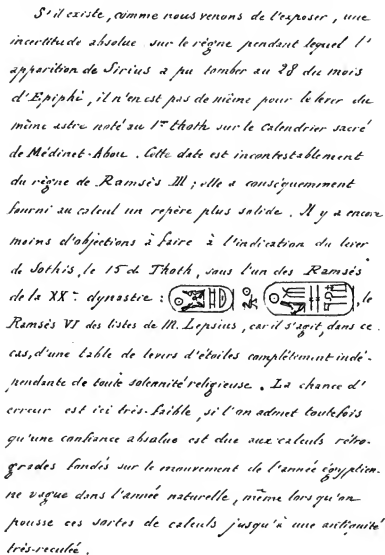 S'il existe, comme nous venons de l'exposer, une
incertitude absolue sur le règne pendant lequel l'
apparition de Sirius a pu tomber au 28 du mois
d'Epiphi, il n'en est pas de même pour le lever du
même astre noté au 1er thoth sur le calendrier sacré
de Médinet-Abou. Cette date est incontestablement
du règne de Ramsès III ; elle a conséquemment
fourni au calcul un repère plus solide. Il y a encore
moins d'objections à faire à l'indication du lever
de Sothis, le 15 de Thoth, sous l'un des Ramsès
de la XXe dynastie : , le
Ramsès VI des listes de M. Lepsius, car il s'agit, dans ce
cas, d'une table de levers d'étoiles complètement indé-
pendante de toute solennité religieuse. La chance d'
erreur est ici très-faible, si l'on admet toutefois
qu'une confiance absolue est due aux calculs rétro-
grades fondés sur le mouvement de l'année égyptien-
ne vague dans l'année naturelle, même lorsqu'on
pousse ces sortes de calculs jusqu'à une antiquité
très-reculée.